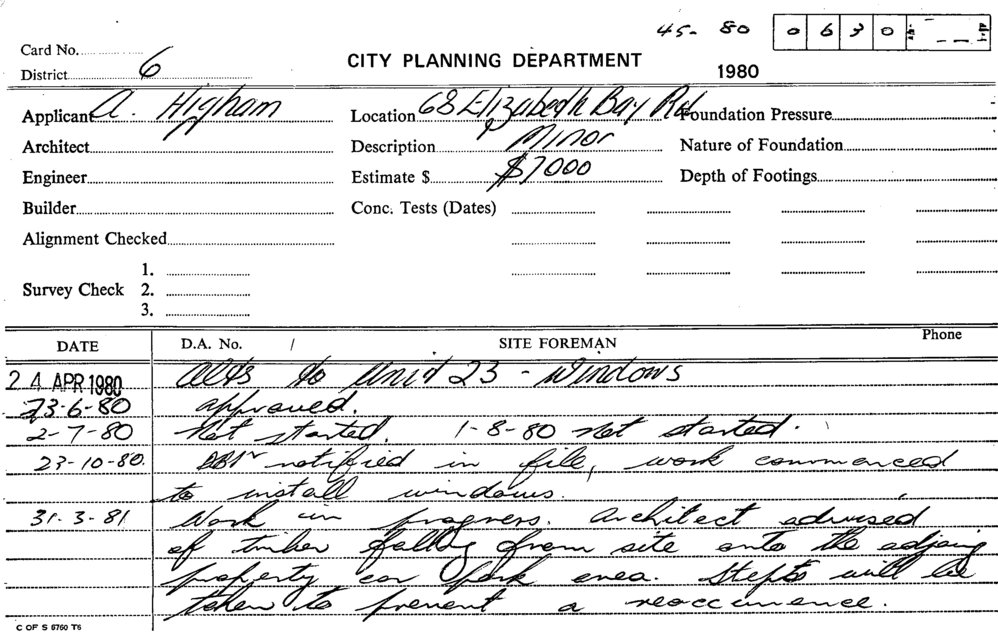 45- 80 0630
Card No.
District 6
CITY PLANNING DEPARTMENT
1980
Applicant A. Higham
Location 68 Elizabeth Bay Rd
Foundation Pressure
Architect
Description Minor
Nature of Foundation
Engineer
Estimate $ $7000
Depth of Footings
Builder
Conc. Tests (Dates)
Alignment Checked
Survey Check
1.
2.
3.
DATE D.A. No. / SITE FOREMAN Phone
24 APR 1980 Alts to Unit 23 - windows
23-6-80 approved.
2-7-80 Not started. 1-8-80 Not started.
23-10-80. notified in file, work commenced
to install windows.
31.3.81. Work in progress. Architect advised
of timber falling from site onto the adjoing
property car park area. Steps will be
taken to prevent a reoccurrence.
C OF S 6760 T6